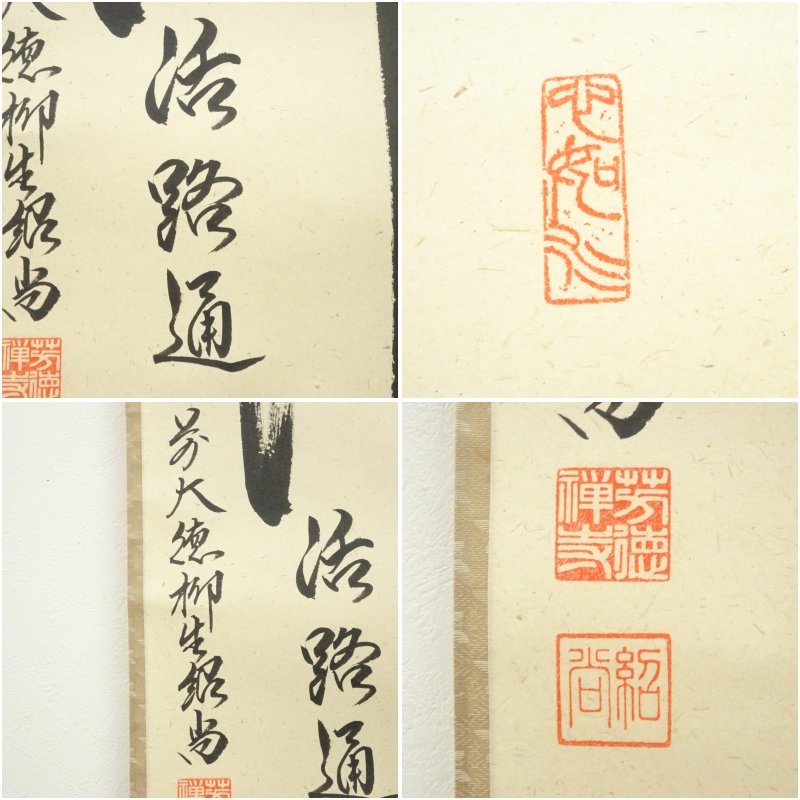 活路通
大徳柳生紹尚
芳徳
禅寺
心如水
活路通
前大徳柳生紹尚
芳
禅
尚
芳徳
禅寺
紹
尚